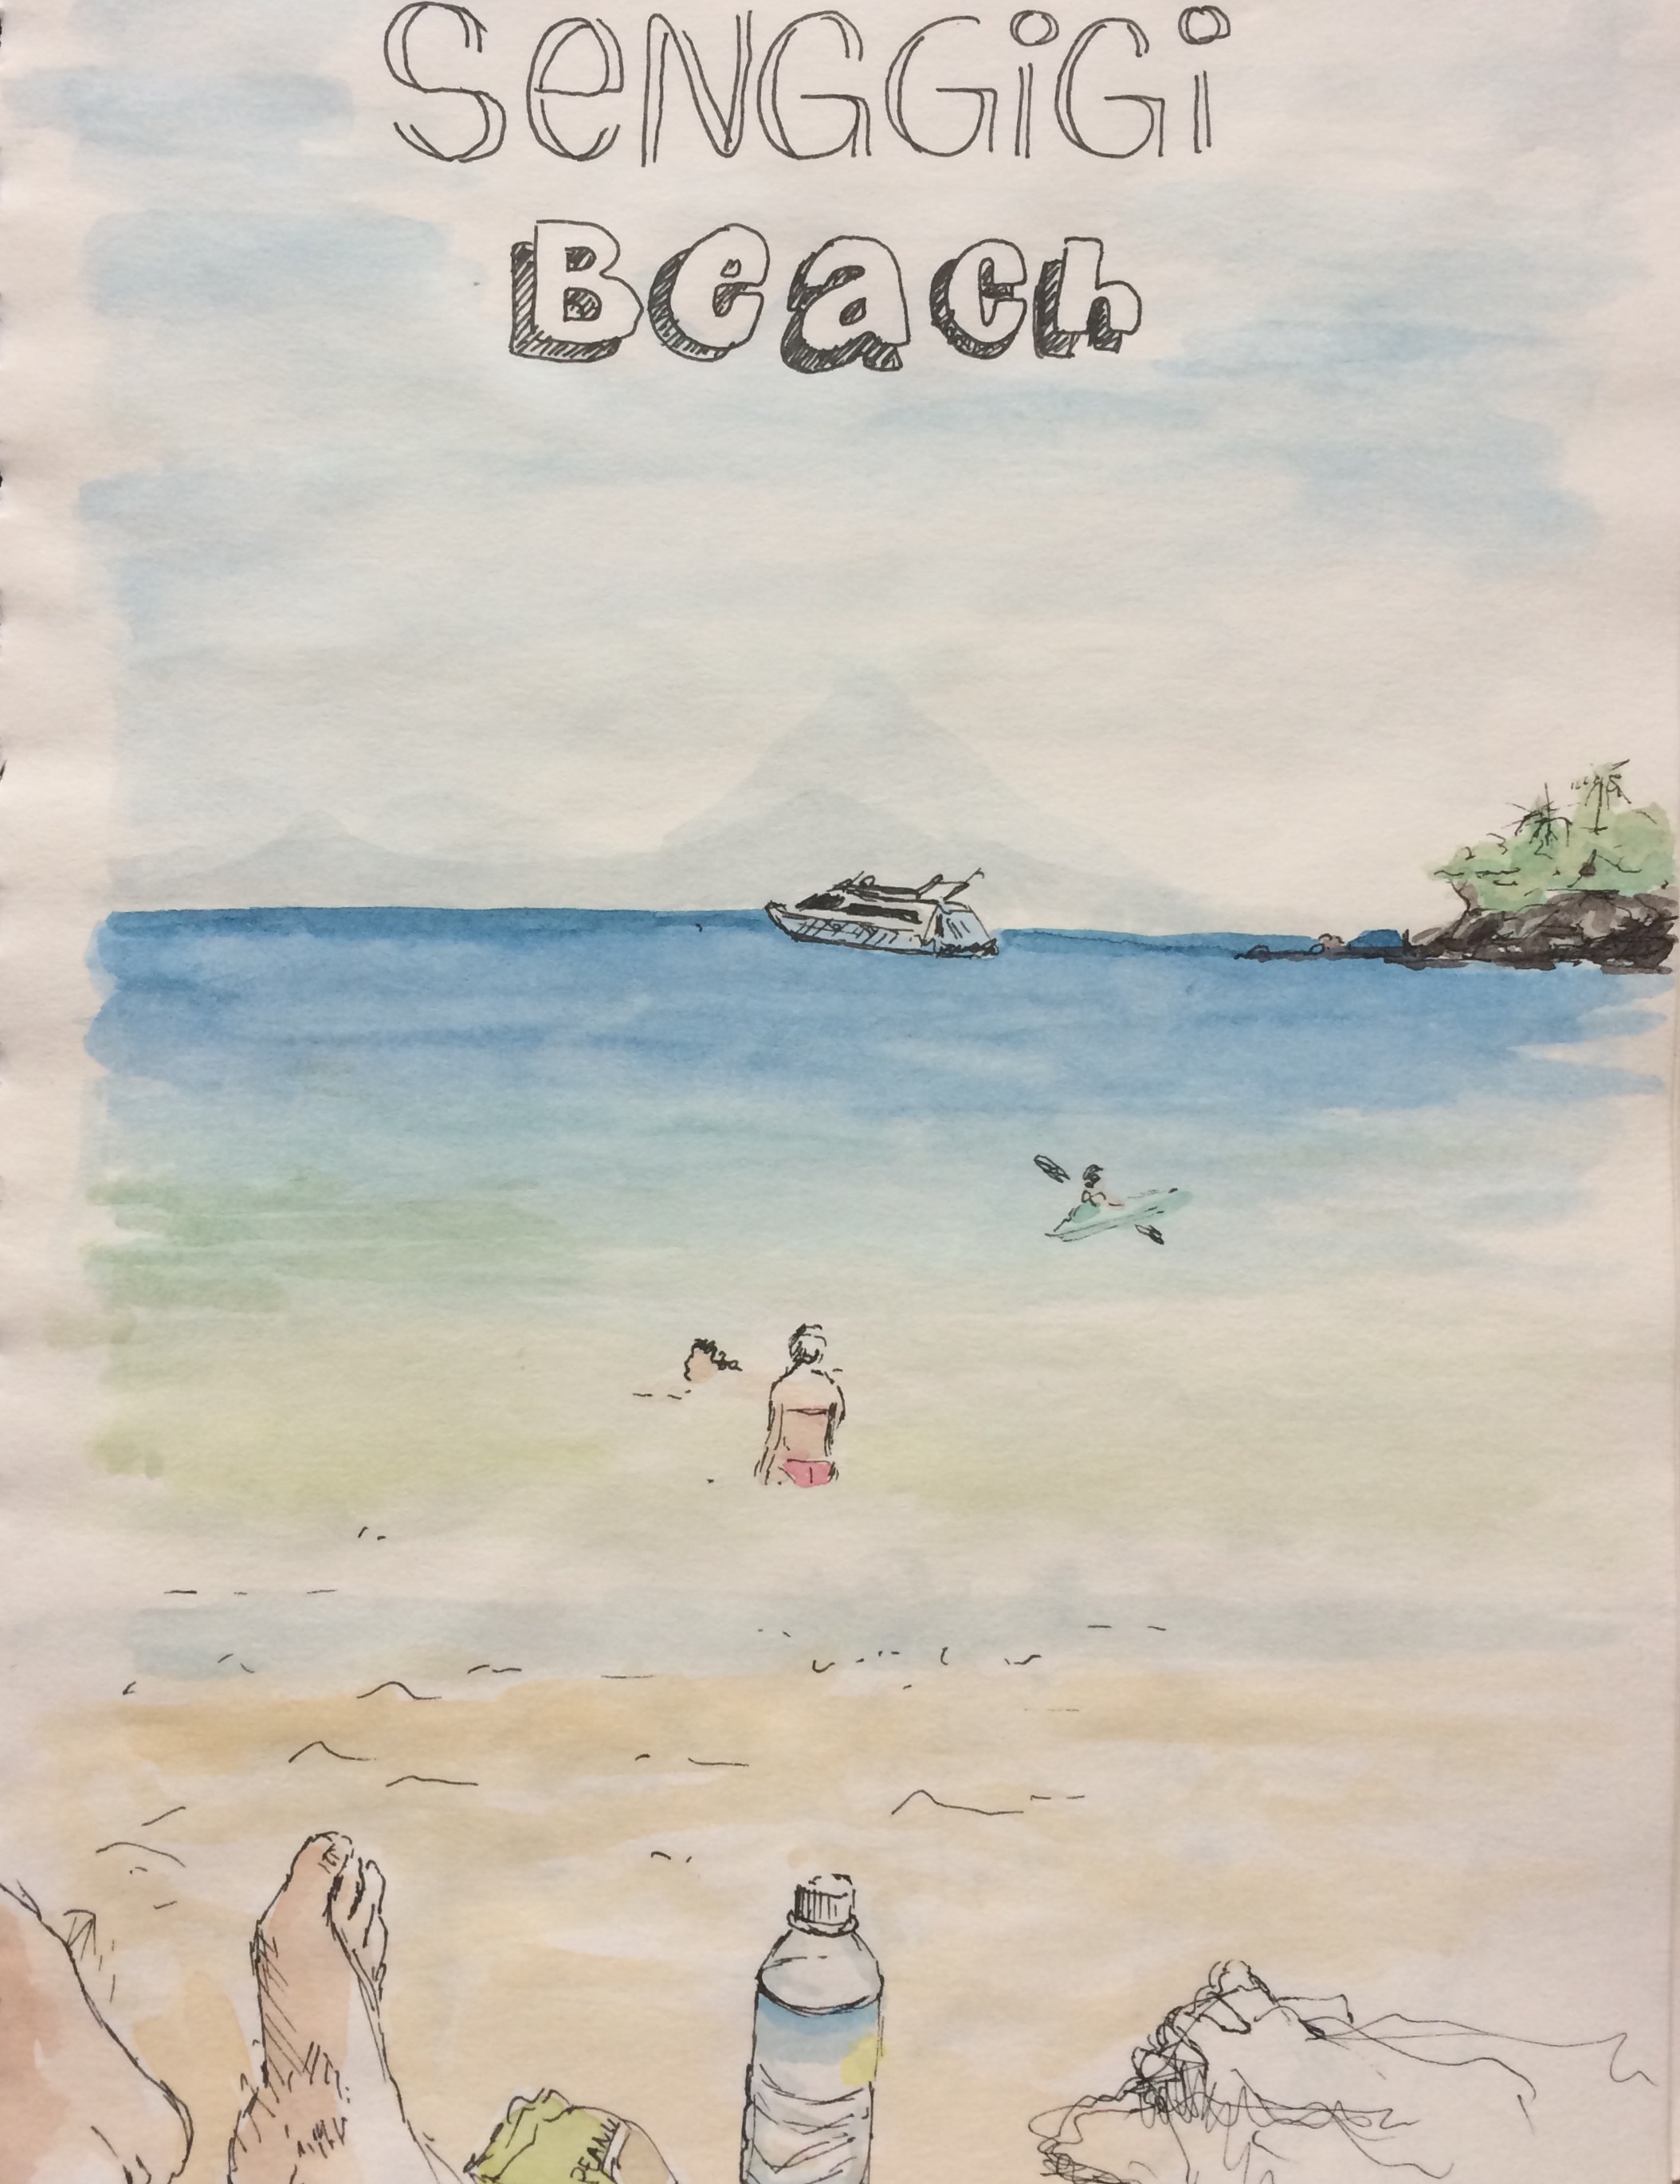 SeNGGiGi
Beach
PEANU